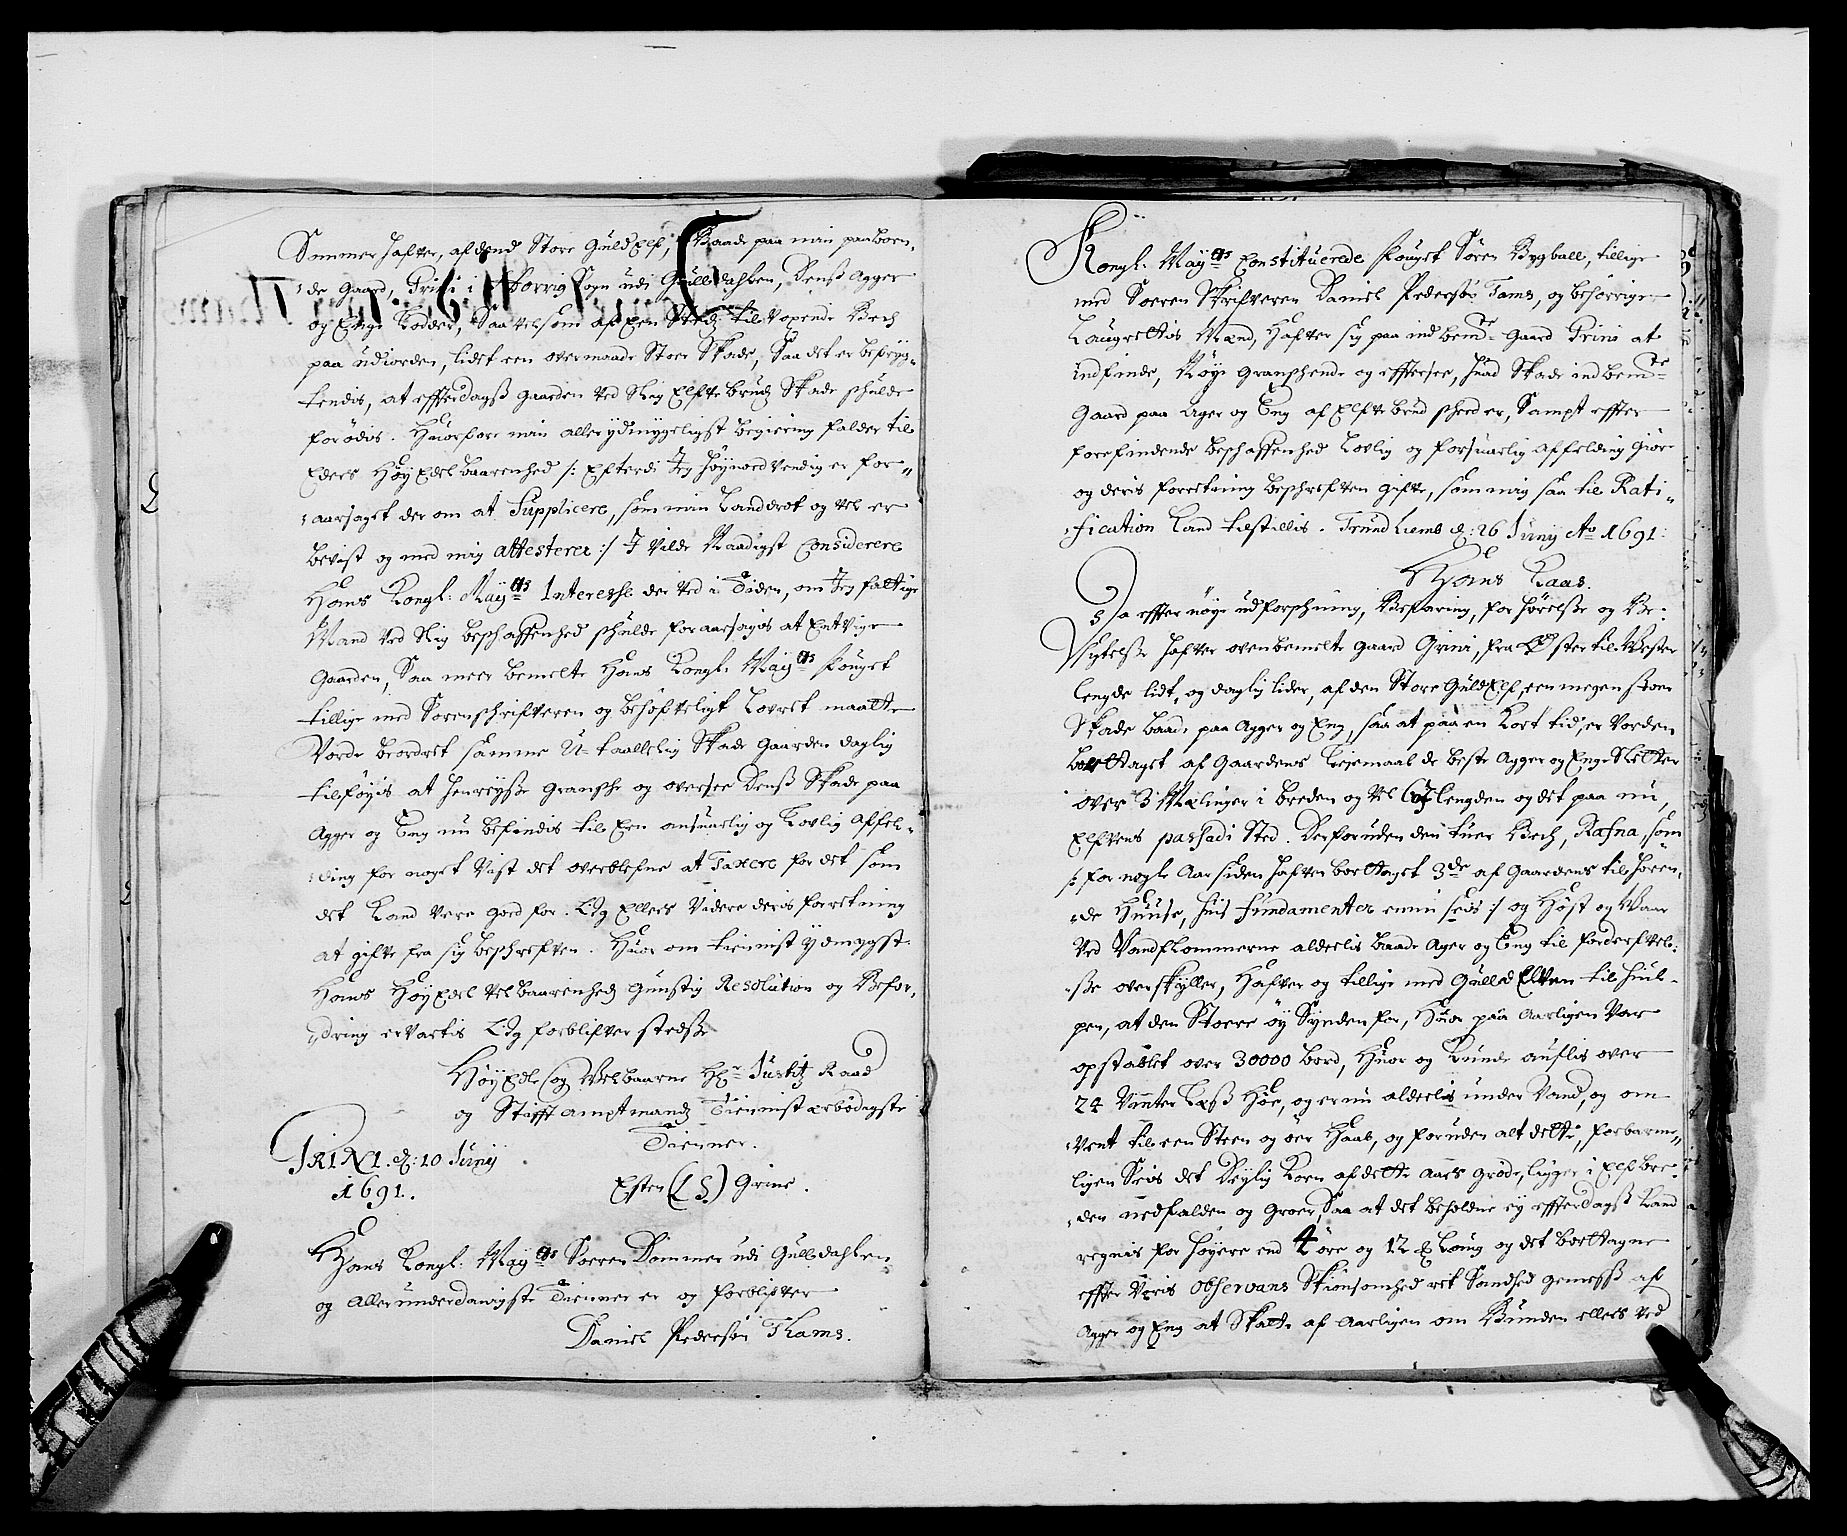 Sommer hafver, af dend Store Guld Elf, Baade paa min paaboen-
de Gaard, Grini i Horrig Sogn udi Guldahlen, Denß Agger
og Enge Lodder, Saavelsom af Een Sted tilløpende Bech
paa udjorden, lidet een overmaade Stoer Skade, Saa det er befryg-
tendis, at effterdagß gaarden ved slig Elfve brud Skade schulde
forødis. Huorfore min aller ydmygeligst begiering falder til
Eders Høy Edel baarenhed /: Efterdi Jeg høynødvendig er for-
aarsaget der om at Supplicere, som min Landdrot og vel er
bevist og med mig attesterer :/ I Vilde Naadigst Considerere
Hans Kongl: May: ts Interesse der ved i Tiden, om Jeg fattige
Mand ved slig beschaffenhed schulde foraarsagis at Entvige
Gaarden, Saa meer bemelte Hans Kongl: May: ts Fouget
tillige med Sorenschrifveren og behøfveligt Lovret maatte
Vorde beordret samme U-taallelig Skade gaarden daglig
tilføyis at henreyse Gransche og oversee Denß Skade paa
Agger og Eng nu befindis til Een ansuarlig og Lovlig Affel-
ding for noget Vist det overblefne at Taxere for det som
det Kand Vere god for. Og Ellers Videre deris forretning
at gifve fra sig beschrefven. Huor om tienistydmygst
Hans Høy Edel Velbaarenhedz Gunstig Resolution og Befor-
dring erVartis Og forblifver stedse
Høy Edle og Velbaarne Hr Justitz Raad
og Stifft amptmandz Tienistærbødigste
Tienner.
GRINI. d: 10 Juny
1691.
Esten (L S) Grine.
Hans Kongl: May: ts Soeren Dommer udi Guldahlen
og Allerunderdanigste Tienner er og forblifver
Daniel Pedersøn Thams.
Kongl: May: ts Constituerede Fouget Søren Bygball, tillige
med Soeren Skrifveren Daniel Pedersøn Tams, og behørrige
Laugrettis Mænd, hafver sig paa ind bem: te Gaard Grini at
indfinde, Nøye Granschende og efftersee, huad Skade ind bem: te
Gaard paa Ager og Eng af Elfvebrud scheed er, Sampt effter
forefindende beschaffenhed Lovlig og forsuarlig affelding giøre
og deris forretning beschrefven gifve, som mig saa til Rati-
fication Kand tilstillis. Trundhiemb d: 26 Juny Ao 1691:
Hans Kaas.
Da effter nøye udforschning, Befaring, forhørelse og Be-
sigtelse hafver ovenbemelte gaard Grini, fra Øster til Vester
lengde lidt, og daglig lider, af den Store Guld Elf, een megen stoer
Skade baade paa Agger og Eng, saa at paa en Kort tid, er Vorden
borttaget af Gaardens Leyemaal de beste Agger og Enge Sletter
over 3 Mælinger i breden og vel 6 i Lengden og det paa nu
Elfvens passadi Sted. Desforuden den tuer Bech, Rafna, som
/: for nogle Aar siden hafver borttaget 3de af Gaardens tilhøren-
de Huuse, huis Fundamenter ennu seis :/ og Høst og Vaar
ved Vandflommerne aldeelis baade Ager og Eng til forderfvel-
se overskyller, hafver og tillige med Guld Elfven tilhiul-
pen, at den Stoere øy Synden for, huor paa Aarligen Var
opstablet over 30000 bord, huor og Kunde aufles over
24 Vinter Læß Høe, og er nu aldeelis under Vand, og om
Vent til een Steen og øer haab, og foruden alt dette, forbarme-
ligen Seis det deylig Korn af dette Aars grøde, ligger i Elfbre-
den nedfalden og groer, Saa at det beholdne ey effterdagß Kand
regnis for høyere end 4 øre og 12 Laug og det borttagne
effter Voris Observans Skiønsomhed ret Sandhed gemesß af
Agger og Eng at Skatte af Aarligen om Bunden ellers ved